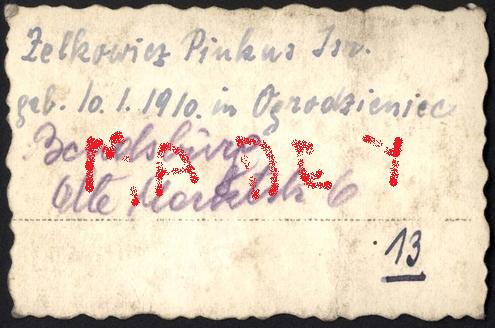 Zelkowicz Pinkus Isr.
geb. 10.1.1910. in Ogrodzieniec
Bendsburg
Alte 6
MADEY
13